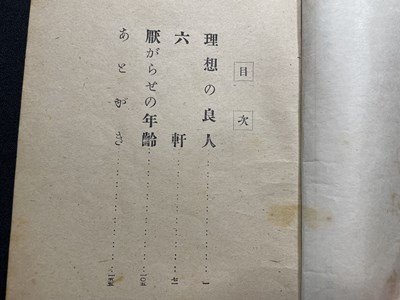 目次
理想の良人 一
六軒 七一
厭がらせの年齢 一〇五
あとがき